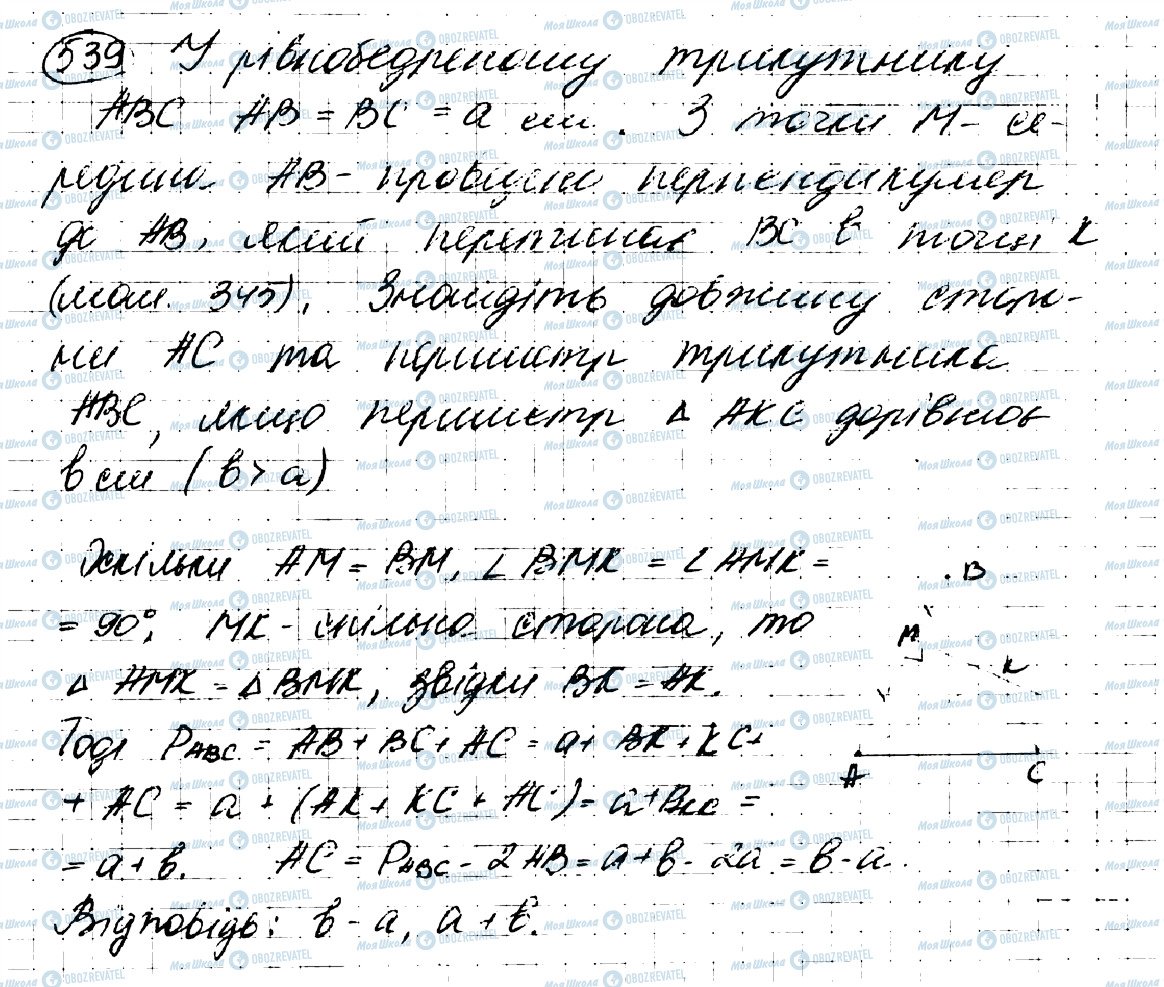 539 У рівнобедреному трикутнику
ABC AB = BC = a см. З точки M - се-
редина AB - проведено перпендикуляр
до AB, який перетинає BC в точці K
(мал. 345). Знайдіть довжину сторо-
ни AC та периметр трикутника
ABC, якщо периметр Δ AKC дорівнює
в см (в > a)
Оскільки AM = BM, ∠ BMK = ∠ AMK =
= 90°, MK - спільна сторона, то
Δ AMK = Δ BMK, звідки BK = AK.
Тоді P_ABC = AB + BC + AC = a + BK + KC +
+ AC = a + (AK + KC + AC) = a +
= a + в. AC = P_ABC - 2AB = a + в - 2a = в - a.
Відповідь: в - a, a + в.
B
M
K
A
C